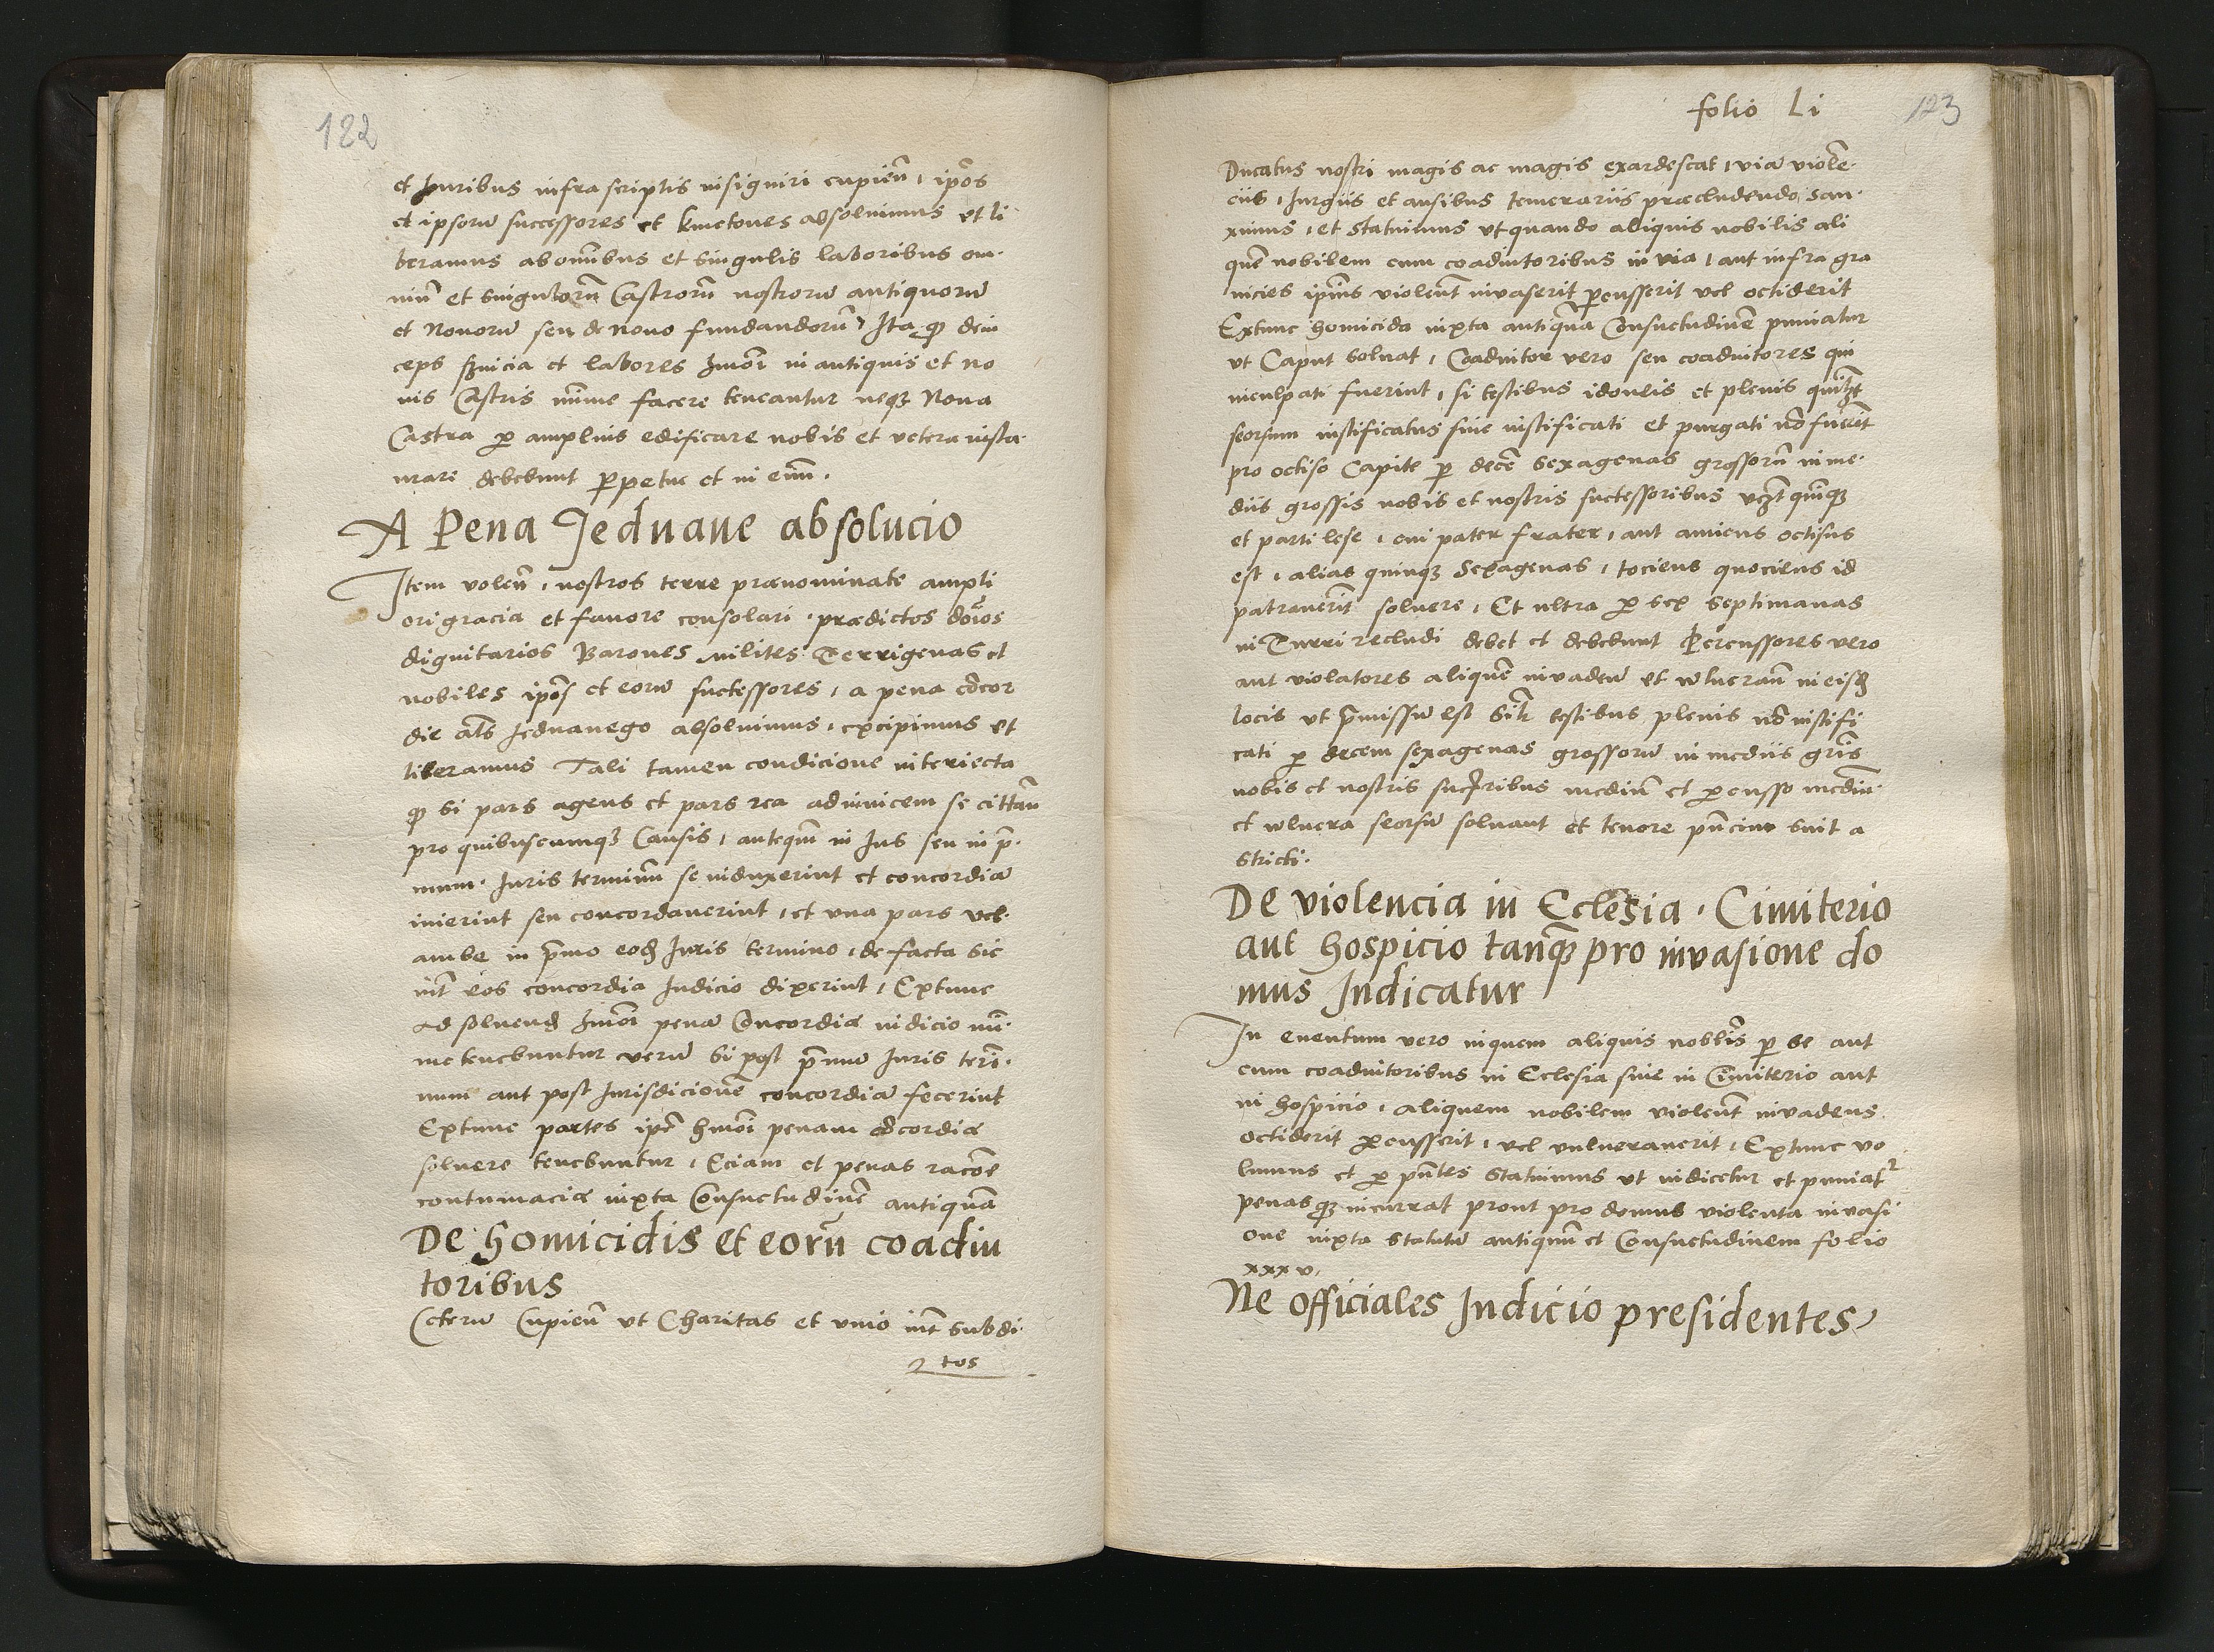 122
et Juribus infra scriptis insigniri cupieñ, ipōs
et ipsorū successores et kmetones absoluimus et li
beramus ab omībus et singulis laboribus om-
niū et singulorū Castrorū nostrorū antiquorū
et Nouorū seu de nouo fundandorū, Ita qȝ dein
ceps seruicia et labores hmōi in antiquis et no
uis Castris mīme facere teneantur neqȝ Noua
Castra ꝑ amplius edificare nobis et vetera insta-
urare debebunt ꝑpetue et in euū.
A Pena Jednane absolucio
Item voleñ, nostros terre prænominate ampli
ori gracia et fauore consolari, prædictos dōīos
dignitarios Barones milites Terrigenas et
nobiles ipōs et eorū successores, a pena cōcor
die aɫs Jednanego absoluimus, excipimus et
liberamus Tali tamen condicione interiecta
qȝ si pars agens et pars rea adinuicem se cittāū
pro quibuscumqȝ Causis, anteqm̄ in Jus seu in p̄-
mum Juris terminū se induxerint et concordiā
inierint seu concordauerint, et vna pars vel
ambe in p̄mo eodȝ Juris termino, de facta sic
int̄ eos concordia Judicio dixerint, Extunc
ad soluendȝ hmōi penā Concordiæ iudicio mī-
me tenebuntur verū si post p̄mū Juris teri-
num aut post Jurisdicionē concordiā fecerint
Extunc partes ip̄e hmōi penam cōcordiæ
soluere tenebuntur, Eciam et penas racōe
contumaciæ iuxta Consuetudinē antiquā
De homicidis et eorū coadiu
toribus
Ceterū Cupieñ vt Charitas et vnio int̄ subdi-
tos
folio Li
123
Ducatus nostri magis ac magis exardescat, viā violen-
ciis, Jurgiis et ausibus temerariis præcludendo, san-
ximus, et statuimus vt quando aliquis nobilis ali
quē nobilem cum coadiutoribus in via, aut infra gra
nicies ipīus violent̄ inuaserit ꝑcusserit vel occiderit
Extunc homicida iuxta antiquā Consuetudinē puniatur
vt Caput soluat, Coadiutor vero seu coadiutores qui
inculpati fuerint, si testibus idoneis et plenis quilȝt
seorsum iustificatus siue iustificati et purgati nō fuerīt
pro occiso Capite ꝑ decē sexagenas grossorū in me-
diis grossis nobis et nostris successoribus vcȝt quīqȝ
et parti lese, cui pater frater, aut amicus occisus
est, alias quinqȝ Sexagenas, tociens quociens id
patrauerīt soluere, Et vltra ꝑ sex septimanas
in Turri recludi debet et debebunt Percussores vero
aut violatores aliquē inuadeñ et wlnerañ in eisdȝ
locis vt p̄missū est Sīlr testibus plenis nō iustifi
cati ꝑ decem sexagenas grossorū in mediis grīs
nobis et nostris succribus mediū et ꝑcusso mediū
et wlnera seorsū soluant et tenore pn̄ciū sint a
stricti.
De violencia in Eclesia, Cimiterio
aut hospicio tanqȝ pro inuasione do
mus Judicatur
In euentum vero in quem aliquis noblīs ꝑ se aut
cum coadiutoribus in Eclesia siue in Cimiterio aut
in hospicio, aliquem nobilem violent̄ inuadens
occiderit ꝑcusserit, vel vulnerauerit, Extunc vo
lumus et ꝑ pn̄tes statuimus vt iudicetur et puniatr
penasqȝ incurrat prout pro domus violenta inuasi
one iuxta statutū antiquū et Consuetudinem folio
xxxv.
Ne officiales Judicio presidentes,